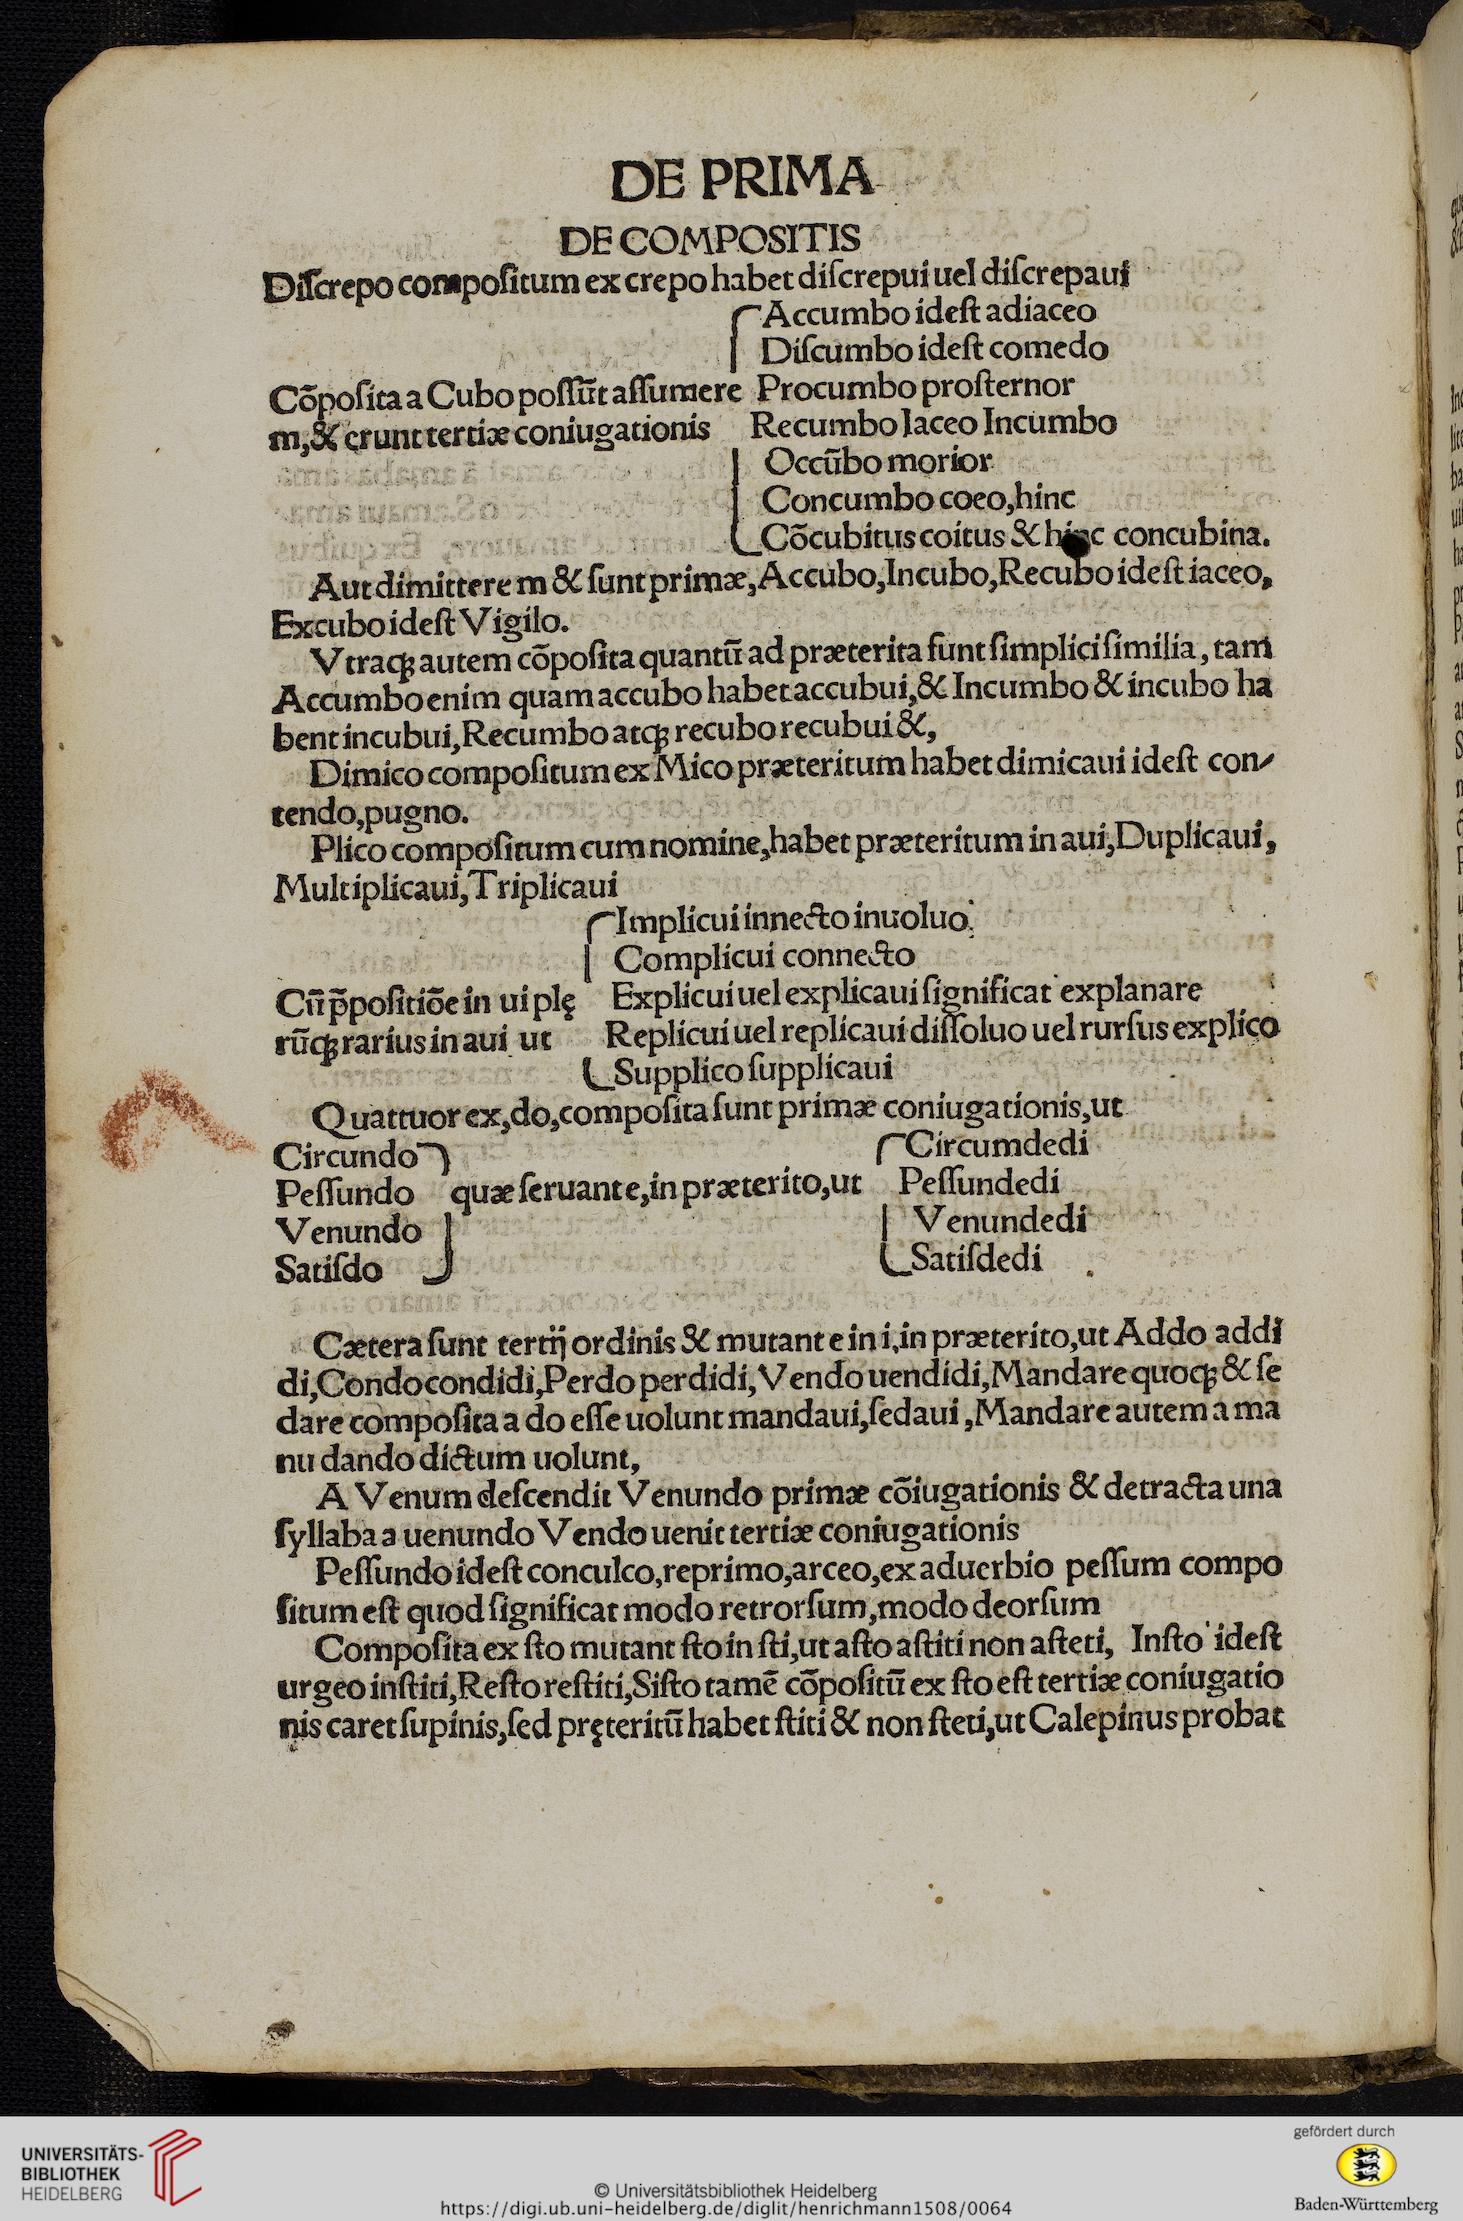 DE PRIMA
DE COMPOSITIS
Diſcrepo compoſitum ex crepo habet diſcrepui uel diſcrepaui
Accumbo ideſt adiaceo
Diſcumbo ideſt comedo
Cõpoſita a Cubo poſſũt aſſumere Procumbo proſternor
m,& erunt tertiæ coniugationis Recumbo Iaceo Incumbo
Occũbo morior
Concumbo coeo,hinc
Cõcubitus coitus & hinc concubina.
Aut dimittere m & ſunt primæ,Accubo,Incubo,Recubo ideſt iaceo,
Excubo ideſt Vigilo.
Vtraqꝫ autem cõpoſita quantũ ad præterita ſunt ſimplici ſimilia, tam
Accumbo enim quam accubo habet accubui,& Incumbo & incubo ha
bent incubui,Recumbo atqꝫ recubo recubui &,
Dimico compoſitum ex Mico præteritum habet dimicaui ideſt con⸗
tendo,pugno.
Plico compoſitum cum nomine,habet præteritum in aui,Duplicaui,
Multiplicaui,Triplicaui
Implicui innecto inuoluo.
Complicui connecto
Cũ p̃poſitiõe in ui plę Explicui uel explicaui ſignificat explanare
rũqꝫ rarius in aui ut Replicui uel replicaui diſſoluo uel rurſus explico
Supplico ſupplicaui
Quattuor ex,do,compoſita ſunt primæ coniugationis,ut
Circundo Circumdedi
Peſſundo quæ ſeruant e,in præterito,ut Peſſundedi
Venundo Venundedi
Satiſdo Satiſdedi
Cætera ſunt tertij ordinis & mutant e in i,in præterito,ut Addo addi
di,Condo condidi,Perdo perdidi,Vendo uendidi,Mandare quoqꝫ & ſe
dare compoſita a do eſſe uolunt mandaui,ſedaui,Mandare autem a ma
nu dando dictum uolunt,
A Venum deſcendit Venundo primæ cõiugationis & detracta una
ſyllaba a uenundo Vendo uenit tertiæ coniugationis
Peſſundo ideſt conculco,reprimo,arceo,ex aduerbio peſſum compo
ſitum eſt quod ſignificat modo retrorſum,modo deorſum
Compoſita ex ſto mutant ſto in ſti,ut aſto aſtiti non aſteti, Inſto ideſt
urgeo inſtiti,Reſto reſtiti,Siſto tamẽ cõpoſitũ ex ſto eſt tertiæ coniugatio
nis caret ſupinis,ſed pręteritũ habet ſtiti & non ſteti,ut Calepinus probat
UNIVERSITÄTS-
BIBLIOTHEK
HEIDELBERG
© Universitätsbibliothek Heidelberg
https://digi.ub.uni-heidelberg.de/diglit/henrichmann1508/0064
gefördert durch
Baden-Württemberg